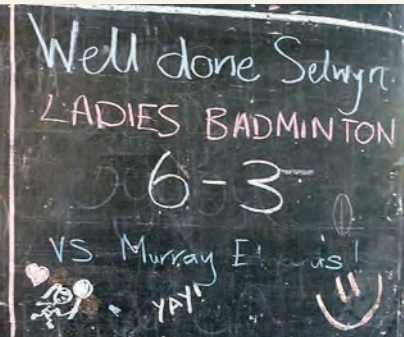 Well done Selwyn
LADIES BADMINTON
6-3
VS Murray
YAY!